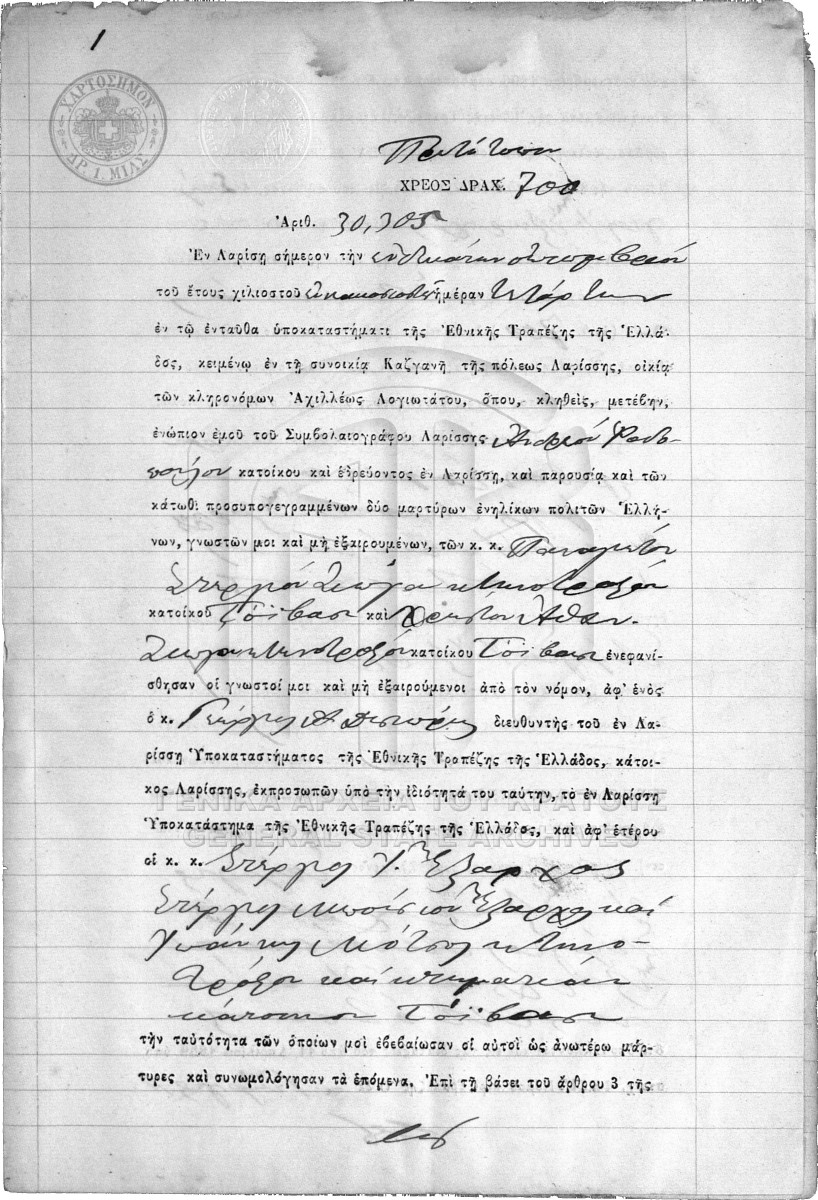 1
ΧΑΡΤΟΣΗΜΟΝ
ΔΡ. 1. ΜΙΑΣ
ΧΡΕΟΣ ΔΡΑΧ. 700
Ἀριθ. 30,305
Ἐν Λαρίσῃ σήμερον τὴν ἑνδεκάτην
τοῦ ἔτους χιλιοστοῦ ἡμέραν Τετάρτην
ἐν τῷ ἐνταῦθα ὑποκαταστήματι τῆς Ἐθνικῆς Τραπέζης τῆς Ἑλλά-
δος, κειμένῳ ἐν τῇ συνοικίᾳ Καζγανῆ τῆς πόλεως Λαρίσσης, οἰκίᾳ
τῶν κληρονόμων Ἀχιλλέως Λογιωτάτου, ὅπου, κληθεὶς, μετέβην,
ἐνώπιον ἐμοῦ τοῦ Συμβολαιογράφου Λαρίσσης
κατοίκου καὶ ἑδρεύοντος ἐν Λαρίσσῃ, καὶ παρουσίᾳ καὶ τῶν
κάτωθι προσυπογεγραμμένων δύο μαρτύρων ἐνηλίκων πολιτῶν Ἑλλή-
νων, γνωστῶν μοι καὶ μὴ ἐξαιρουμένων, τῶν κ. κ. Παναγιώτου
Στεργίου κτηνοτρόφου
κατοίκου καὶ Χρήστου Ἀθαν.
κτηνοτρόφου κατοίκου ἐνεφανί-
σθησαν οἱ γνωστοί μοι καὶ μὴ ἐξαιρούμενοι ἀπὸ τὸν νόμον, ἀφ' ἑνὸς
ὁ κ. Γεώργιος διευθυντὴς τοῦ ἐν Λα-
ρίσσῃ Ὑποκαταστήματος τῆς Ἐθνικῆς Τραπέζης τῆς Ἑλλάδος, κάτοι-
κος Λαρίσσης, ἐκπροσωπῶν ὑπὸ τὴν ἰδιότητά του ταύτην, τὸ ἐν Λαρίσσῃ
ΓΕΝΙΚΑ ΑΡΧΕΙΑ ΤΟΥ ΚΡΑΤΟΥΣ
Ὑποκατάστημα τῆς Ἐθνικῆς Τραπέζης τῆς Ἑλλάδος, καὶ ἀφ' ἑτέρου
GENERAL STATE ARCHIVES
οἱ κ. κ. Στέργιος Γ. Ἔξαρχος
Στέργιος Ἔξαρχος καὶ
Ἰωάννης κτηνο-
τρόφοι καὶ κτηματίαι
κάτοικοι
τὴν ταὐτότητα τῶν ὁποίων μοὶ ἐβεβαίωσαν οἱ αὐτοὶ ὡς ἀνωτέρω μάρ-
τυρες καὶ συνωμολόγησαν τὰ ἑπόμενα. Ἐπὶ τῇ βάσει τοῦ ἄρθρου 3 τῆς